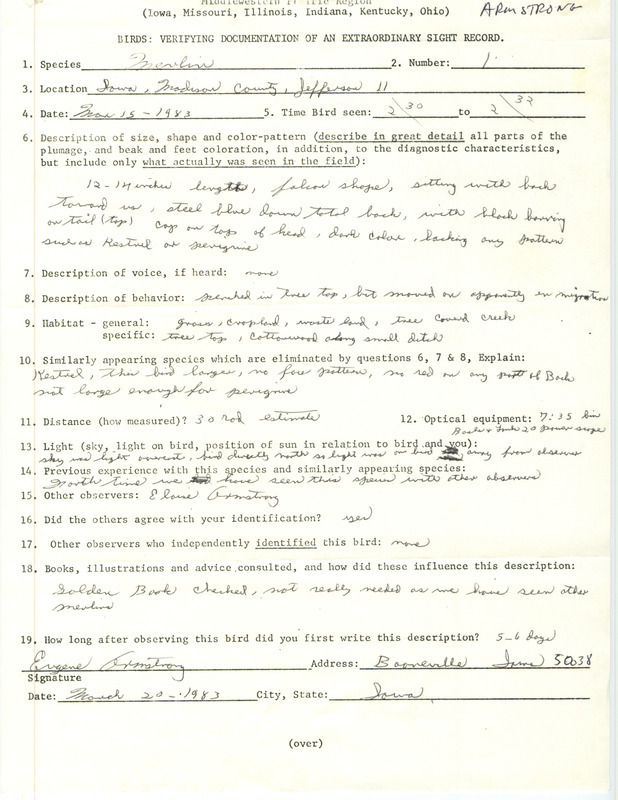 (Iowa, Missouri, Illinois, Indiana, Kentucky, Ohio) ARMSTRONG
BIRDS: VERIFYING DOCUMENTATION OF AN EXTRAORDINARY SIGHT RECORD.
1. Species Merlin 2. Number: 1
3. Location Iowa, Madison County, Jefferson 11
4. Date: Mar 15-1983 5. Time Bird seen: 2 30 to 2 32
6. Description of size, shape and color-pattern (describe in great detail all parts of the
plumage, and beak and feet coloration, in addition, to the diagnostic characteristics,
but include only what actually was seen in the field):
12-14 inches length, falcon shape, sitting with back
toward us, steel blue down total back, with black barring
on tail (top) cap on top of head, dark color, lacking any pattern
such as Kestrel or peregrine
7. Description of voice, if heard: none
8. Description of behavior: perched in tree top, but moved on apparently in migration
9. Habitat - general: grass, cropland, waste land, tree coverd creek
specific: tree top, cottonwood along small ditch
10. Similarly appearing species which are eliminated by questions 6, 7 & 8, Explain:
Kestrel, this bird larger, no face pattern, no red on any part of Back
not large enough for peregrine
11. Distance (how measured)? 30 rod estimate 12. Optical equipment: 7:35 bin
20 power scope
13. Light (sky, light on bird, position of sun in relation to bird and you):
sky was light overcast, bird directly north so light was on bird away from observer
14. Previous experience with this species and similarly appearing species:
time we have seen this species with other observers
15. Other observers: Eloise Armstrong
16. Did the others agree with your identification? yes
17. Other observers who independently identified this bird: none
18. Books, illustrations and advice consulted, and how did these influence this description:
Golden Book checked, not really needed as we have seen other
merlins
19. How long after observing this bird did you first write this description? 5-6 days
Eugene Armstrong Address: Booneville Iowa 50038
Signature
Date: March 20-1983 City, State: Iowa
(over)